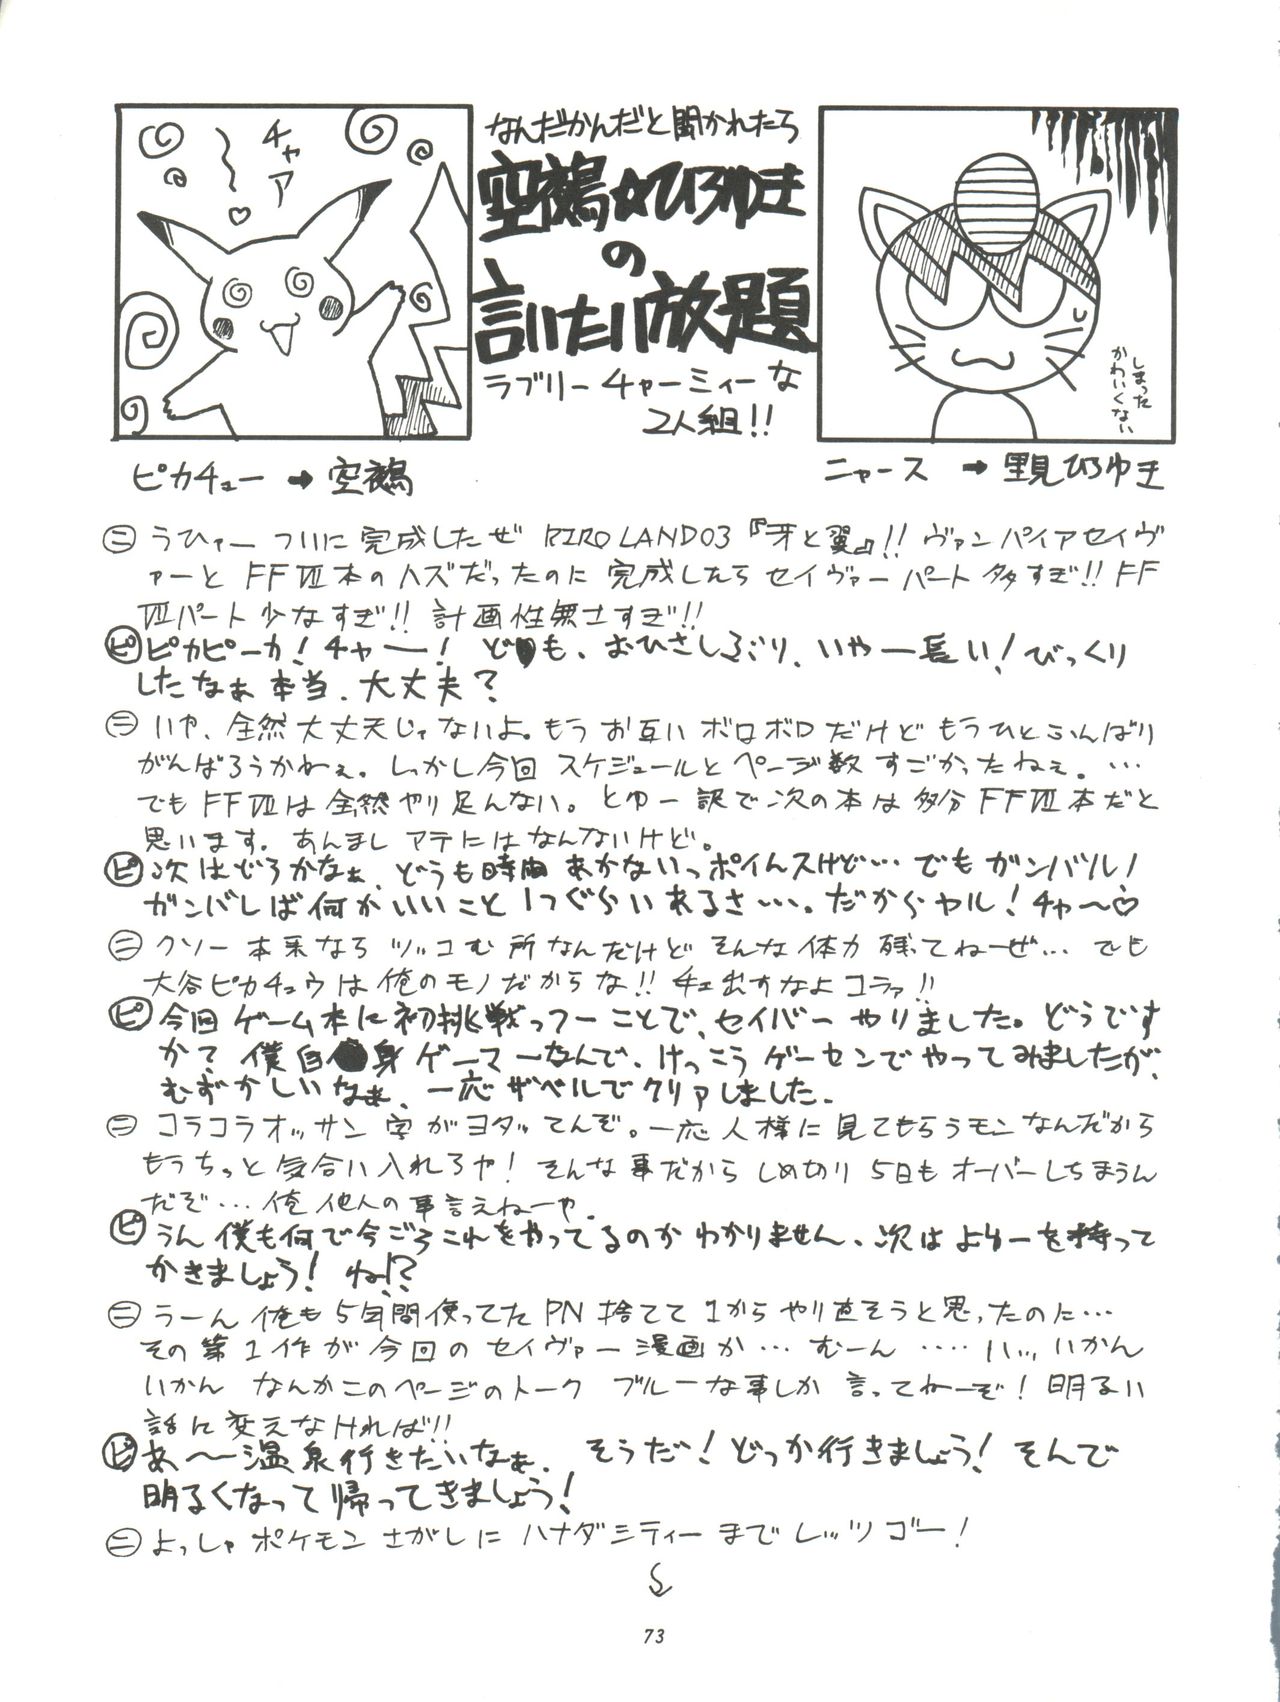 チャア〜♡
なんだかんだと聞かれたら
空鵺☆ひろゆき
の
言いたい放題
ラブリーチャーミィーな
2人組!!
しまった
かわいくない
ピカチュー→空鵺
ニャース→里見ひろゆき
㊁ うひゃー ついに完成したぜ RIRO LAND03『牙と翼』!! ヴァンパイアセイヴ
ァーと FFⅦ本のハズだったのに 完成したら セイヴァーパート多すぎ!! FF
Ⅶパート少なすぎ!! 計画性無さすぎ!!
ピ ピカピーカ! チャー! ども、おひさしぶり、いやー長い! びっくり
したなぁ本当、大丈夫?
㊁ いや、全然大丈夫じゃないよ。もうお互いボロボロだけど もうひとふんばり
がんばろうかねぇ。しっかし今回 スケジュールとページ数すごかったねぇ。…
でもFFⅦは全然やり足んない。とゆー訳で次の本は多分FFⅦ本だと
思います。あんまし アテにはなんないけど。
ピ 次はどろかなぁ、どうも時間あかないっポイんスけど… でもガンバツル!
ガンバしば何かいいこと1つぐらいあるさ…。だからヤル! チャ〜♡
㊁ クソー本来なら ツッコむ所なんだけど そんな体力残ってねーぜ… でも
大谷ピカチュウは俺のモノだからな!! チェ出すなよコラァ!!
ピ 今回ゲーム本に初挑戦っつーことで、セイバーやりました。どうです
か? 僕自身ゲーマーなんで、けっこうゲーセンでやってみましたが、
むずかしいなぁ、一応ザベルでクリアしました。
㊁ コラコラオッサン字がヨタッてんぞ。一応人様に見てもらうモンなんだから
もうちっと気合い入れろや! そんな事だから しめ切り5日もオーバーしちまうん
だぞ… 俺他人の事言えねーや。
ピ うん僕も何で今ごろこれをやってるのかわかりません、次はよゆーを持って
かきましょう! ね!?
㊁ うーん俺も5年間使ってたPN捨てて1からやり直そうと思ったのに…
その第1作が今回のセイヴァー漫画か… むーん …. ハッ、いかん
いかん なんかこのページのトーク ブルーな事しか言ってねーぞ! 明るい
話に変えなければ!!
ピ あ〜温泉行きたいなぁ、 そうだ! どっか行きましょう! そんで
明るくなって帰ってきましょう!
㊁ よっしゃポケモンさがしに ハナダシティーまでレッツゴー!
73